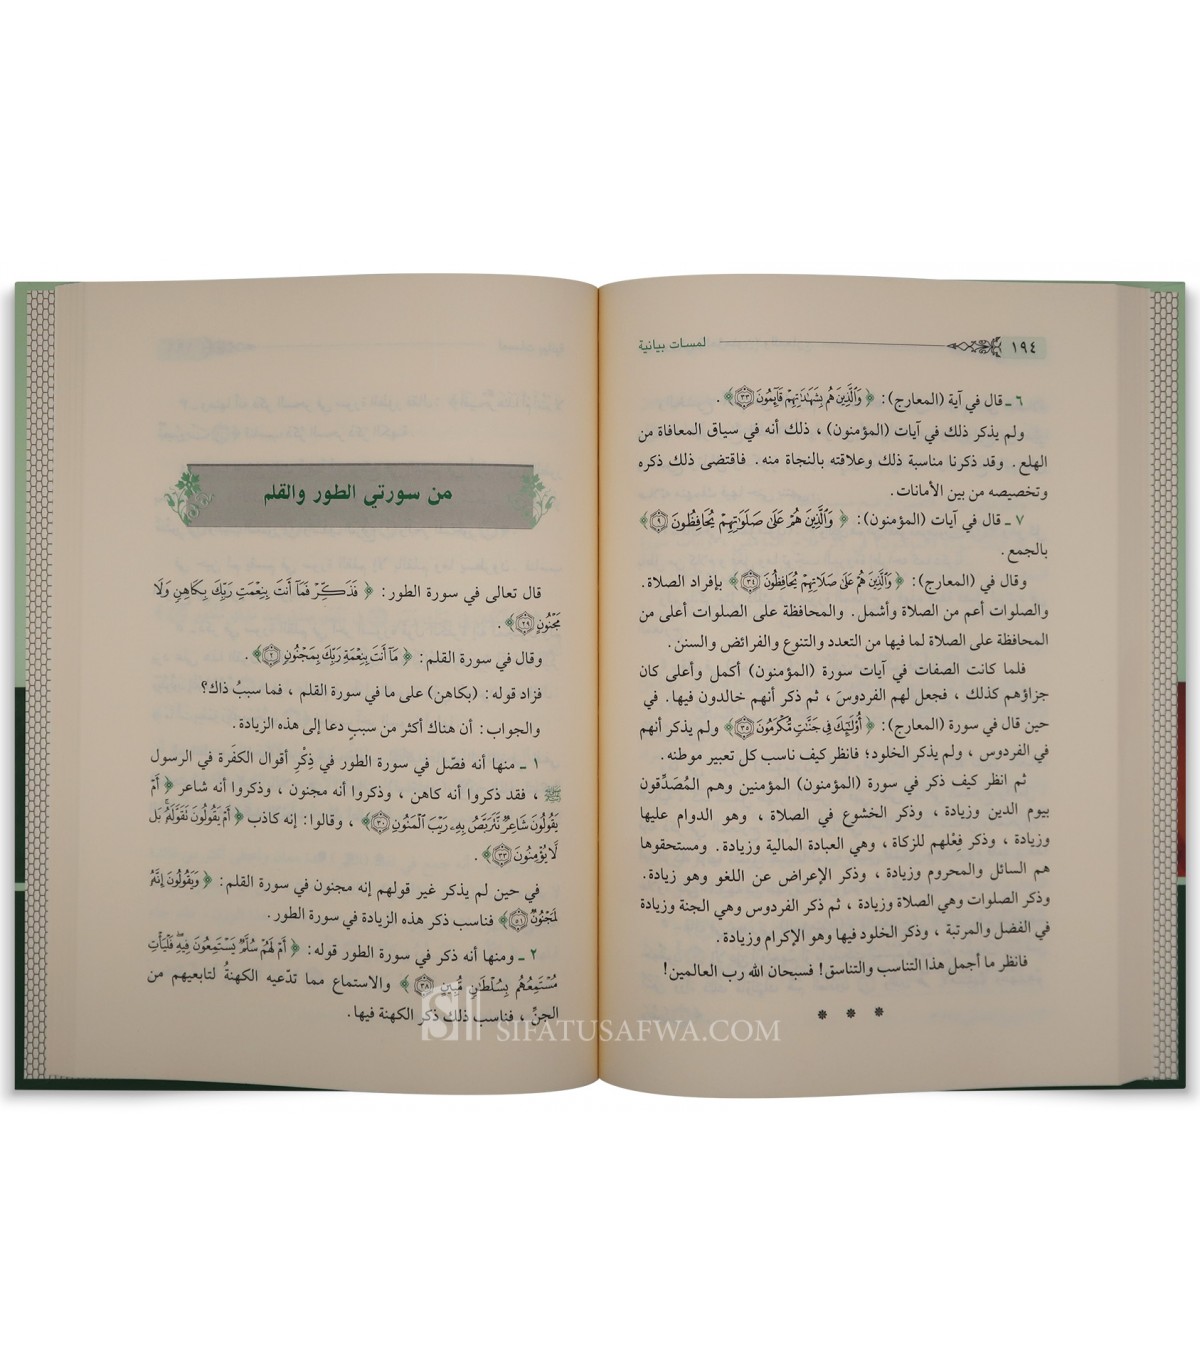 ١٩٤ لمسات بيانية
٦ ـ قال في آية (المعارج): ﴿ وَٱلَّذِينَ هُم بِشَهَٰدَٰتِهِمۡ قَآئِمُونَ ٣٣﴾ .
ولم يذكر ذلك في آيات (المؤمنون) ، ذلك أنه في سياق المعافاة من
الهلع. وقد ذكرنا مناسبة ذلك وعلاقته بالنجاة منه. فاقتضى ذلك ذكره
وتخصيصه من بين الأمانات.
٧ ـ قال في آيات (المؤمنون): ﴿ وَٱلَّذِينَ هُمۡ عَلَىٰ صَلَوَٰتِهِمۡ يُحَافِظُونَ ٩﴾
بالجمع .
وقال في (المعارج): ﴿ وَٱلَّذِينَ هُمۡ عَلَىٰ صَلَاتِهِمۡ يُحَافِظُونَ ٣٤﴾ بإفراد الصلاة.
والصلوات أعم من الصلاة وأشمل. والمحافظة على الصلوات أعلى من
المحافظة على الصلاة لما فيها من التعدد والتنوع والفرائض والسنن.
فلما كانت الصفات في آيات سورة (المؤمنون) أكمل وأعلى كان
جزاؤهم كذلك ، فجعل لهم الفردوسَ ، ثم ذكر أنهم خالدون فيها. في
حين قال في سورة (المعارج): ﴿ أُوْلَٰٓئِكَ فِي جَنَّٰتٖ مُّكۡرَمُونَ ٣٥﴾ ولم يذكر أنهم
في الفردوس ، ولم يذكر الخلود؛ فانظر كيف ناسب كل تعبير موطنه.
ثم انظر كيف ذكر في سورة (المؤمنون) المؤمنين وهم المُصَدِّقون
بيوم الدين وزيادة ، وذكر الخشوع في الصلاة ، وهو الدوام عليها
وزيادة ، وذكر فِعْلهم للزكاة ، وهي العبادة المالية وزيادة. ومستحقوها
هم السائل والمحروم وزيادة ، وذكر الإعراض عن اللغو وهو زيادة.
وذكر الصلوات وهي الصلاة وزيادة ، ثم ذكر الفردوس وهي الجنة وزيادة
في الفضل والمرتبة ، وذكر الخلود فيها وهو الإكرام وزيادة.
فانظر ما أجمل هذا التناسب والتناسق! فسبحان الله رب العالمين!
* * *
من سورتي الطور والقلم
قال تعالى في سورة الطور: ﴿ فَذَكِّرۡ فَمَآ أَنتَ بِنِعۡمَتِ رَبِّكَ بِكَاهِنٖ وَلَا
مَجۡنُونٍ ٢٩﴾ .
وقال في سورة القلم: ﴿ مَآ أَنتَ بِنِعۡمَةِ رَبِّكَ بِمَجۡنُونٖ ٢﴾ .
فزاد قوله: (بكاهن) على ما في سورة القلم ، فما سببُ ذاك؟
والجواب: أن هناك أكثر من سببٍ دعا إلى هذه الزيادة.
١ ـ منها أنه فصّل في سورة الطور في ذِكْرِ أقوال الكفَرة في الرسول
ﷺ ، فقد ذكروا أنه كاهن ، وذكروا أنه مجنون ، وذكروا أنه شاعر ﴿ أَمۡ
يَقُولُونَ شَاعِرٞ نَّتَرَبَّصُ بِهِۦ رَيۡبَ ٱلۡمَنُونِ ٣٠﴾ ، وقالوا: إنه كاذب ﴿ أَمۡ يَقُولُونَ تَقَوَّلَهُۥۚ بَل
لَّا يُؤۡمِنُونَ ٣٣﴾ .
في حين لم يذكر غير قولهم إنه مجنون في سورة القلم: ﴿ وَيَقُولُونَ إِنَّهُۥ
لَمَجۡنُونٞ ٥١﴾ فناسب ذكر هذه الزيادة في سورة الطور.
٢ ـ ومنها أنه ذكر في سورة الطور قوله: ﴿ أَمۡ لَهُمۡ سُلَّمٞ يَسۡتَمِعُونَ فِيهِۖ فَلۡيَأۡتِ
مُسۡتَمِعُهُم بِسُلۡطَٰنٖ مُّبِينٍ ٣٨﴾ والاستماع مما تدّعيه الكهنةُ لتابعيهم من
الجنِّ ، فناسب ذلك ذكر الكهنة فيها.
SIFATUSAFWA.COM